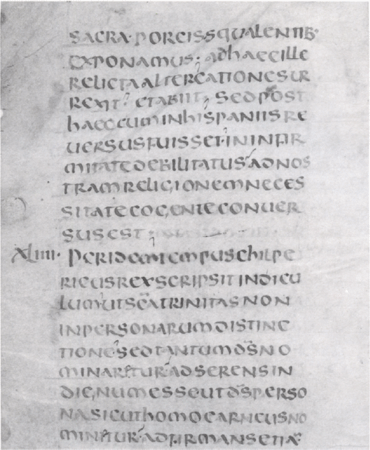 SACRA·PORCISSQUALENTIB·
EXPONAMUS; ADHAECILLE
RELICTAALTERCATIONESUR
REXIT· ETABIIT; SEDPOST
HAECCUMINHISPANIISRE
UERSUSFUISSET·ININFIR
MITATEDEBILITATUSADNOS
TRAMRELIGIONEMNECES
SITATECOGENTECONUER
SUSEST;
XLIIII· PERIDEMTEMPUSCHILPE
RICUSREXSCRIPSITINDICU
LUMUTSCĀTRINITASNON
INPERSONARUMDISTINC
TIONESEDTANTUMDS̄NO
MINARETURADSERENSIN
DIGNUMESSEUTDS̄PERSO
NASICUTHOMOCARNEUSNO
MINETURADFIRMANSETIĀ